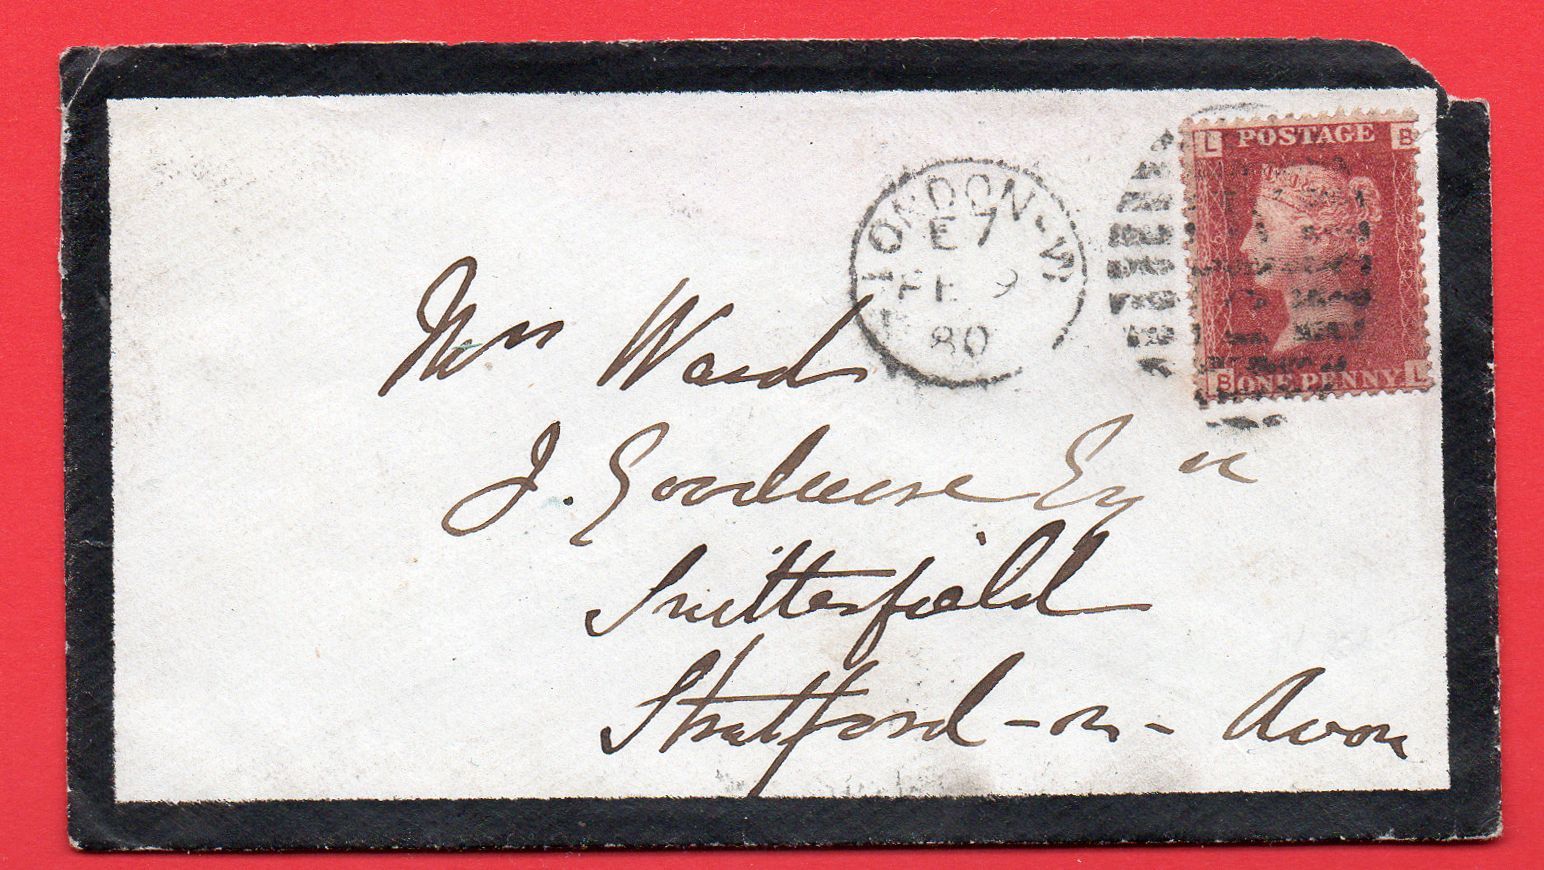 L POSTAGE B
LONDON-W
E7
FE 9
80
B ONE PENNY L
Mrs Ward
J. Esqre
Snitterfield
Stratford-on-Avon